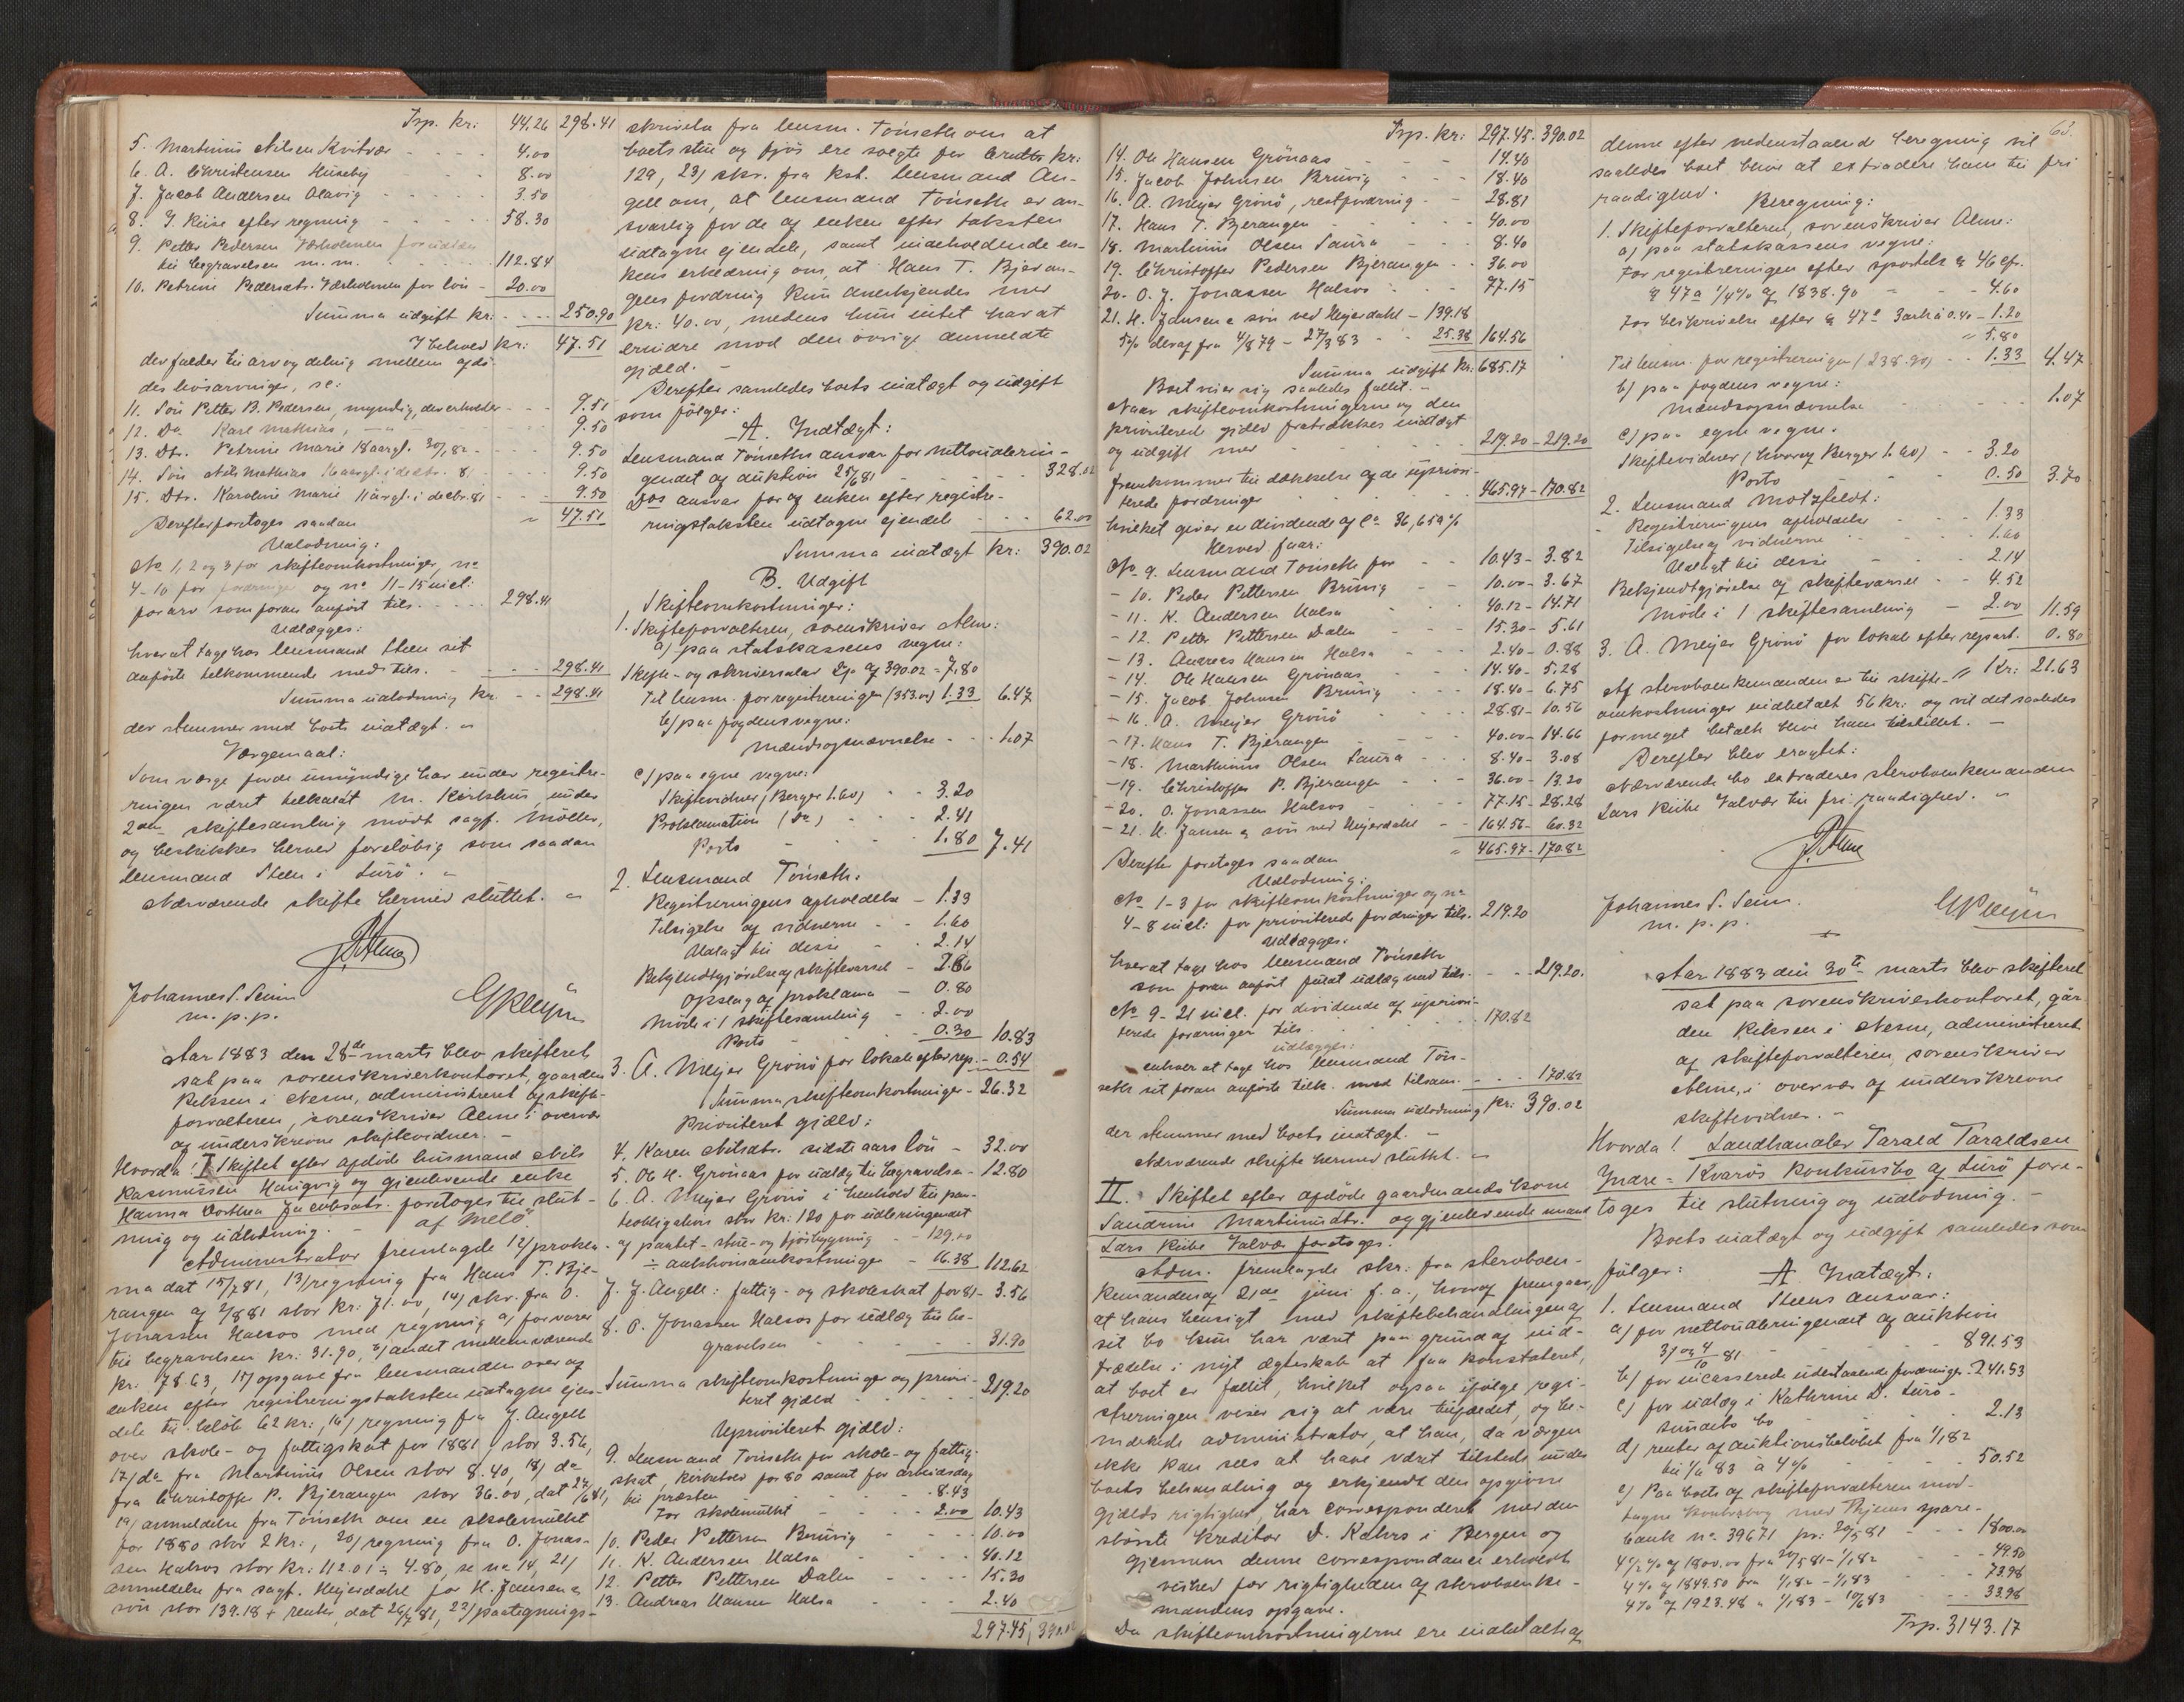 Trp. kr: 44.26 298.41
5. Martinus Nilsen Kvitvær - - - 4.00
6. A. Christensen Huseby - - 8.00
7. Jacob Andersen Alavig - - - 3.50
8. J. Kiise efter regning - - - 58.30
9. Petter PedersenVærholmen for udlæg
til begravelsen m.m. - - - 112.84
10. Petrine Pedersdtr. Værholmen for løn - 20.00
Summa udgift kr: - - - 250.90
I behold kr: 47.51
der falder til arv og deling mellem afdø-
des livsarvinger, se:
11. Søn Petter B. Pedersen, myndig, der erholder - - - 9.51
12. Do Karl Mathias, - 9.50
13. Dtr. Petrine Marie 18 aargl. 30/1 82 - - - 9.50
14. Søn Nils Mathias 16 aargl. i decbr. 81 - - 9.50
15. Dtr. Karoline Marie 11 årgl. i decbr. 81 - - - 9.50
Derefter foretoges saadan " 47.51
Udlodning:
No 1, 2 og 3 for skifteomkostninger, no
4-10 for fordringer og no 11-15 incl:
for arv som foran anført tils. - - - 298.41
Udlægges:
hver at tage hos lensmand Steen sit
anførte tilkommende med tils. - - - 298.41
Summa udlodning kr. - - 298.41
der stemmer med boets indtægt. -
Værgemaal:
Som værge for de umyndige har under registre-
ringen været tilkaldt M. Kirkhus, under
2den skiftesamling mødt sagf. Møller,
og beskikkes herved foreløbig som saadan
lensmand Steen i Lurø. -
Nærværende skifte hermed sluttet. -
Johannes S. Seim
m. p. p.
Aar 1883 den 28de marts blev skifteret
sat paa sorenskriverkontoret, gaarden
Riksen i Nesne, administreret af skifte-
forvalteren, sorenskriver Alme i overvær
af underskrevne skiftevidner. -
Hvorda! I Skiftet efter afdøde husmand Nils
Rasmussen Haugvig og gjenlevende enke
Hanna Dorthea Jacobsdtr. foretoges til slut-
ning og udlodning. - af Melø.
Administrator fremlagde 12/ prokla-
ma dat 15/7 81, 13/ regning fra Hans T. Bje-
rangen af 2/8 81 stor kr: 71.00, 14/ skr. fra O.
Jonassen Halsos med regning a/ for varer
til begravelsen kr: 31.90, b/ andet mellemværende
kr: 78.63, 15/ opgave fra lensmanden over af
enken efter registreringstaksten udtagne eien-
dele til beløb 62 kr:, 16/ regning fra J. Angell
over skole- og fattigskat for 1881 stor 3.56,
17/ do fra Martinus Olsen stor 8.40, 18/ do
fra Christoffer P. Bjerangen stor 36.00, dat 27/6 81,
19/ anmeldelse fra Tønseth om en skolemulkt
for 1880 stor 2 kr:, 20/ regning fra O. Jonas-
sen Halsos stor kr: 112.01 ÷ 4.80, se no 14, 21/
anmeldelse fra sagf. Meyerdahl for H. Jansen &
søn stor 139.18 + renter, dat 26/7 81, 22/ paategnings-
skrivelse fra lensm. Tønseth om at
boets stue og fjøs ere solgte for Credtr kr:
129, 23/ skr. fra kst. lensmand An-
gell om, at lensmand Tønseth er an-
svarlig for de af enken efter taksten
udtagne ejendele, samt indeholdende en-
kens erklæring om, at Hans T. Bjeran-
gens fordring kun anerkjendes med
kr: 40.00, medens hun intet har at
erindre mod den øvrige anmeldte
gjæld. -
Derefter samledes boets indtægt og udgift
som følger:
A. Indtægt:
Lensmand Tønseths ansvar for nettoudbrin-
gendet af auktion 25/6 81 - - - 328.02
Dos ansvar for af enken efter registre-
ringstaksten udtagne ejendele - - - 62.00
Summa indtægt kr: 390.02
B. Udgift
Skifteomkostninger:
1. Skifteforvalteren, sorenskriver Alme:
a) paa statskassens vegne:
Skifte- og skriversalær 2% af 390.02 = 7.80
Til lensm. for registreringen (353.02) 1.33 6.47
b/ paa fogdens vegne:
Mændsopnævnelse - - - 1.07
c/ paa egne vegne:
Skiftevidner (Berger 1.60) - - 3.20
Proklamation (Do) - - - 2.41
Porto - - - 1.80 7.41
2. Lensmand Tønseth:
Registreringens afholdelse - 1.33
Tilsigelse af vidnerne - - 1.60
Udlagt til disse - - 2.14
Bekjendtgjørelse af skiftevarsel - 2.66
Opslag af proklama - 0.80
Møde i 1 skiftesamling - - 2.00
Porto - - - 0.30 10.83
3. A. Meyer Grønø for lokale efter rep. - 0.54
Summa skifteomkostninger - 26.32
Prioriteret gjæld:
4. Karen Nilsdtr. sidste aars løn - 32.00
5. Ole H. Grønaas for udlæg til begravelsen - 12.80
6. A. Meyer Grønø i henhold til pan-
teobligation stor kr: 120 for udbringendet
af pantet - stue- og fjøsbygning - - 129.00
÷ auktionsomkostninger - 16.38 112.62
7. J. Angell: fattig- og skoleskat for 81 - 3.56
8. O. Jonassen Halsos for udlæg til be-
gravelsen - - - 31.90
Summa skifteomkostninger og priori-
teret gjæld - - - 219.20
Uprioriteret gjæld:
9. Lensmand Tønseth for skole- og fattig-
skat, kirkebrød for 80 samt for arbeidsdag
til præsten - - - 8.43
For skolemulkt - - - 2.00 10.43
10. Peder Pettersen Brurvig - - - 10.00
11. K. Andersen Halsa - - - 40.12
12. Petter Pettersen Dalen - - - 15.30
13. Andreas Hansen Halsa - - - 2.40
297.45 390.02
Trp. kr: 297.45 - 390.02
14. Ole Hansen Grønaas - - - 14.40
15. Jacob Johnsen Brurvig - - - 18.40
16. A. Meyer Grønø, restfordring - - 28.81
17. Hans T. Bjerangen - - - 40.00
18. Martinus Olsen Saura - - - 8.40
19. Christoffer Pedersen Bjerangen - - 36.00
20. O. J. Jonassen Halsos - - - 77.15
21. H. Jansen & søn ved Meyerdahl - 139.18
5% deraf fra 4/8 79 - 27/3 83 - - 25.38 164.56
Summa udgift kr: 685.17
Boet viser sig saaledes fallit. -
Naar skifteomkostningerne og den
prioriterede gjæld fratrækkes indtægt
og udgift med - - - 219.20 - 219.20
fremkommer til dækkelse af de upriori-
terede fordringer - - - 465.97 - 170.82
hvilket giver en dividende af ca 36,659 %
Herved faar:
No 9. Lensmand Tønseth for - - 10.43 - 3.82
- 10. Peder Pettersen Brurvig - - 10.00 - 3.67
- 11. K. Andersen Halsa - 40.12 - 14.71
- 12. Petter Pettersen Dalen - - 15.30 - 5.61
- 13. Andreas Hansen Halsa - - 2.40 - 0.88
- 14. Ole Hansen Grønaas - - 14.40 - 5.28
- 15. Jacob Johnsen Brurvig - - 18.40 - 6.75
- 16. A. Meyer Grønø - - - 28.81 - 10.56
- 17. Hans T. Bjerangen - - - 40.00 - 14.66
- 18. Martinus Olsen Saura - - - 8.40 - 3.08
- 19. Christoffer P. Bjerangen - - 36.00 - 13.20
- 20. O. Jonassen Halsos - - - 77.15 - 28.28
- 21. H. Jansen & søn ved Meyerdahl - - 164.56 - 60.32
Derefter foretoges saadan " 465.97 - 170.82
Udlodning:
No 1-3 for skifteomkostninger og no
4-8 incl: for prioriterede fordringer tils. 219.20
Udlægges:
hver at tage hos lensmand Tønseth
som foran anført fuldt udlæg med tils. - - - 219.20.
No 9-21 incl. for dividende af upriori-
terede fordringer tils. - - - 170.82
udlægges:
enhver at tage hos lensmand Tøn-
seth sit foran anførte tilk. med tilsam. - - - 170.82
Summa udlodning kr: 390.02
der stemmer med boets indtægt. -
Nærværende skifte hermed sluttet. -
II. Skiftet efter afdøde gaardmandskone
Sandrine Martinusdtr. og gjenlevende mand
Lars Kiibe Valvær foretoges.
Adm. fremlagde skr: fra sterboen-
kemanden af 21de juni f. a., hvoraf fremgaar,
at hans hensigt med skiftebehandlingen af
sit bo kun har været paa grund af ind-
trædelse i nyt ægteskab at faa konstateret,
at boet er fallit, hvilket ogsaa ifølge regi-
streringen viser sig at være tilfældet, og be-
mærkede administrator, at han, da værgen
ikke kan sees at have været tilstede under
boets behandling og erkjendt den opgivne
gjælds rigtighed, har corresponderet med den
største kreditor D. Kahrs i Bergen og
gjennem denne correspondance erholdt
vished for rigtigheden af sterboenke-
mandens opgave.
Da skifteomkostningerne ere indbetalt af
63.
denne efter nedenstaaende beregning vil
saaledes boet blive at extradere ham til fri
raadighed. Beregning:
1. Skifteforvalteren, sorenskriver Alme:
a) paa statskassens vegne:
For registreringen efter sportelt. § 46 cfr.
§ 47a 1/4% af 1838.90 - - 4.60
For beskrivelse efter § 47c 3 ark à 0.40 - 1.20
" 5.80
Til lensm. for registreringen (238.90) - - 1.33 4.47
b/ paa fogdens vegne:
Mændsopnævnelse - - - 1.07
c/ paa egne vegne.
Skiftevidner (hvoraf Berger 1.60) - - 3.20
Porto - - 0.50 3.70
2. Lensmand Motzfeldt:
Registreringens afholdelse - - 1.33
Tilsigelse af vidnerne - - 1.60
Udlagt til disse - - 2.14
Bekjendtgjørelse af skiftevarsel - - 4.52
Møde i 1 skiftesamling - 2.00 11.59
3. A. Meyer Grønø for lokale efter repart. 0.80
" kr: 21.63
Af sterboenkemanden er til skifte-
omkostninger indbetalt 56 kr: og vil det saaledes
formeget betalte blive ham tilstillet. -
Derefter blev eragtet:
Nærværende bo extraderes sterboenkemanden
Lars Kiibe Valvær til fri raadighed. -
Johannes S. Seim.
m. p. p.
Aar 1883 den 30te marts blev skifteret
sat paa sorenskriverkontoret, går-
den Riksen i Nesne, administreret
af skifteforvalteren, sorenskriver
Alme, i overvær af underskrevne
skiftevidner. -
Hvorda! Landhandler Tarald Taraldsen
Indre-Kvarøs konkursbo af Lurø fore-
toges til slutning og udlodning. -
Boets indtægt og udgift samledes som
følger: A. Indtægt:
1. Lensmand Steens ansvar:
a/ for nettoudbringendet af auktion
3/ og 4/10 81 - - - 891.53
b/ for incasserede udestaaende fordringer - 241.53
c/ for udlæg i Kathrine D. Lurø-
sundets bo - - - 2.13
d/ renter af auktionsbeløbet fra 1/1 82
til 1/6 83 à 4% - - - 50.52
e/ Paa boets af skifteforvalteren mod-
tagne kontrabog med Thjems spare-
bank no. 39671 pr: 20/5 81 - - - 1800.00
4 1/2 % af 1800.00 fra 20/5 81 - 1/1 82 - - 49.50
4 % af 1849.50 fra 1/1 82 - 1/1 83 - - 73.98
4 % af 1923.48 " 1/1 83 - 10/6 83 - - 33.98
Trp. 3143.17